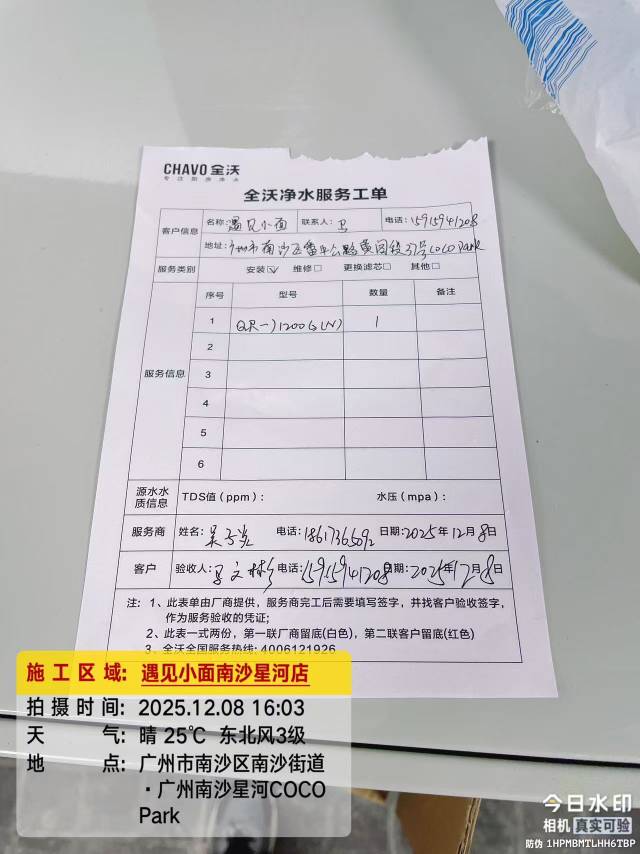 CHAVO 全沃
专注厨房净水
全沃净水服务工单
客户信息 名称: 遇见小面 联系人: 卫 电话: 15915941208
地址: 广州市南沙区番中公路黄阁段31号COCO Park
服务类别 安装☑ 维修□ 更换滤芯□ 其他□
服务信息 序号 型号 数量 备注
1 QR-J1200G(N) 1
2
3
4
5
6
源水水质信息 TDS值(ppm): 水压(mpa):
服务商 姓名: 电话: 18617365092 日期: 2025年12月8日
客户 验收人: 文彬 电话: 15915941208 日期: 2025年12月8日
注: 1、此表单由厂商提供，服务商完工后需要填写签字，并找客户验收签字，
作为服务验收的凭证;
2、此表一式两份，第一联厂商留底(白色)，第二联客户留底(红色)
3、全沃全国服务热线: 4006121926
施工区域: 遇见小面南沙星河店
拍摄时间: 2025.12.08 16:03
天气: 晴 25℃ 东北风3级
地点: 广州市南沙区南沙街道
·广州南沙星河COCO
Park
今日水印
相机 真实可验
防伪 1HPMBMTLHH6TBP